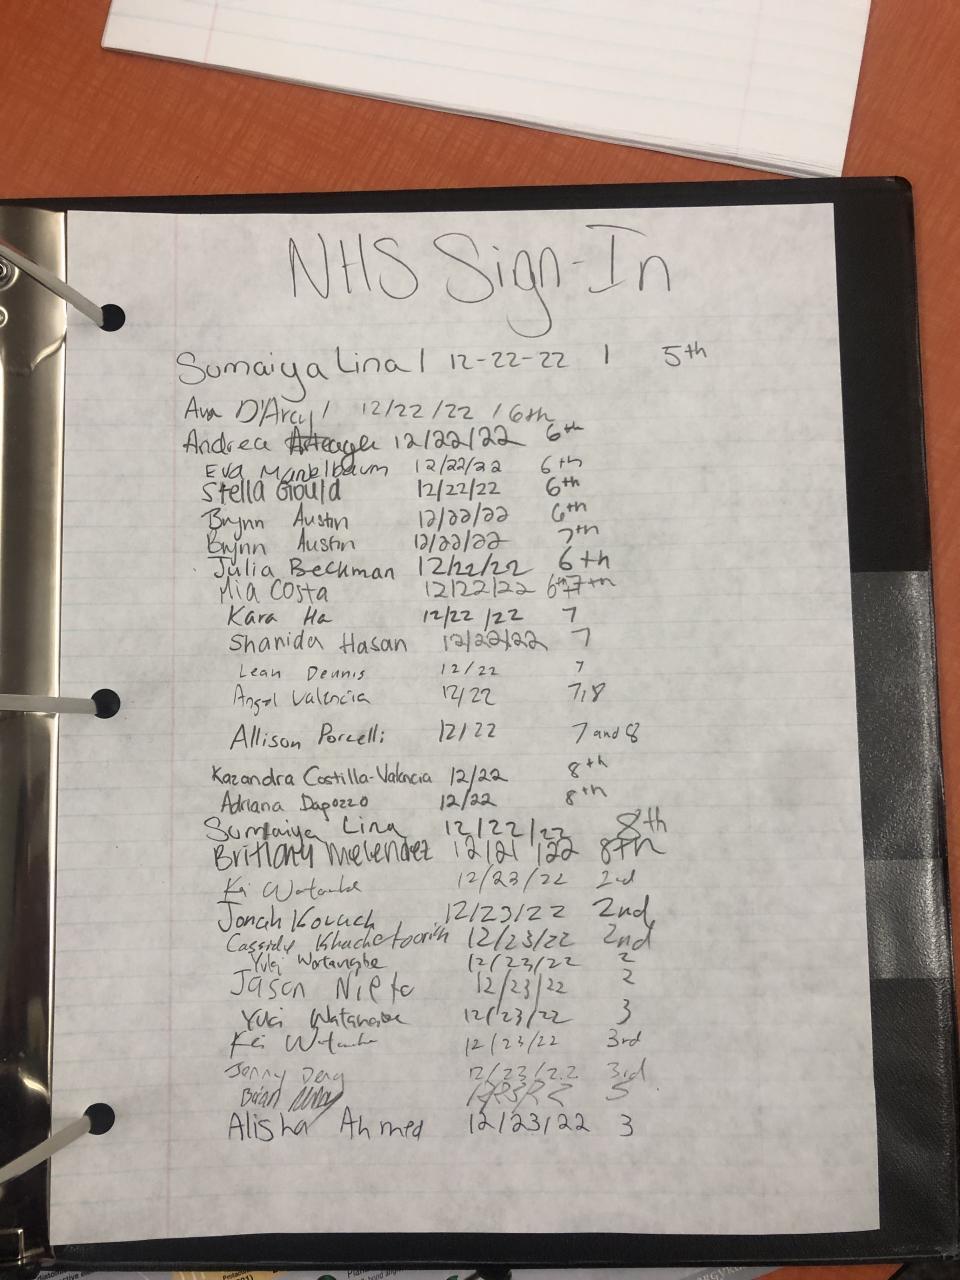 NHS Sign-In
Sumaiya Lina | 12-22-22 | 5th
Ava D'Arcy / 12/22/22 / 6th
Andrea 12/22/22 6th
Eva Mankelbaum 12/22/22 6th
Stella Gould 12/22/22 6th
Brynn Austin 12/22/22 6th
Brynn Austin 12/22/22 7th
Julia Beckman 12/22/22 6th
Mia Costa 12/22/22 6th 7th
Kara Ha 12/22/22 7
Shanida Hasan 12/22/22 7
Lean Dennis 12/22 7
Angel Valencia 12/22 7,8
Allison Porcelli 12/22 7 and 8
Kazandra Costilla-Valencia 12/22 8th
Adriana Dapozzo 12/22 8th
Sumaiya Lina 12/22/22 8th
Brittany Melendez 12/21/22 8th
Kei Watanabe 12/23/22 2nd
Jonah Kovach 12/23/22 2nd
Cassidy Khachetoorian 12/23/22 2nd
Yuki Watanabe 12/23/22 2
Jason Nieto 12/23/22 2
Yuki Watanabe 12/23/22 3
Kei Watanabe 12/23/22 3rd
Jonny Deng 12/23/22 3rd
Brian 5
Alisha Ahmed 12/23/22 3